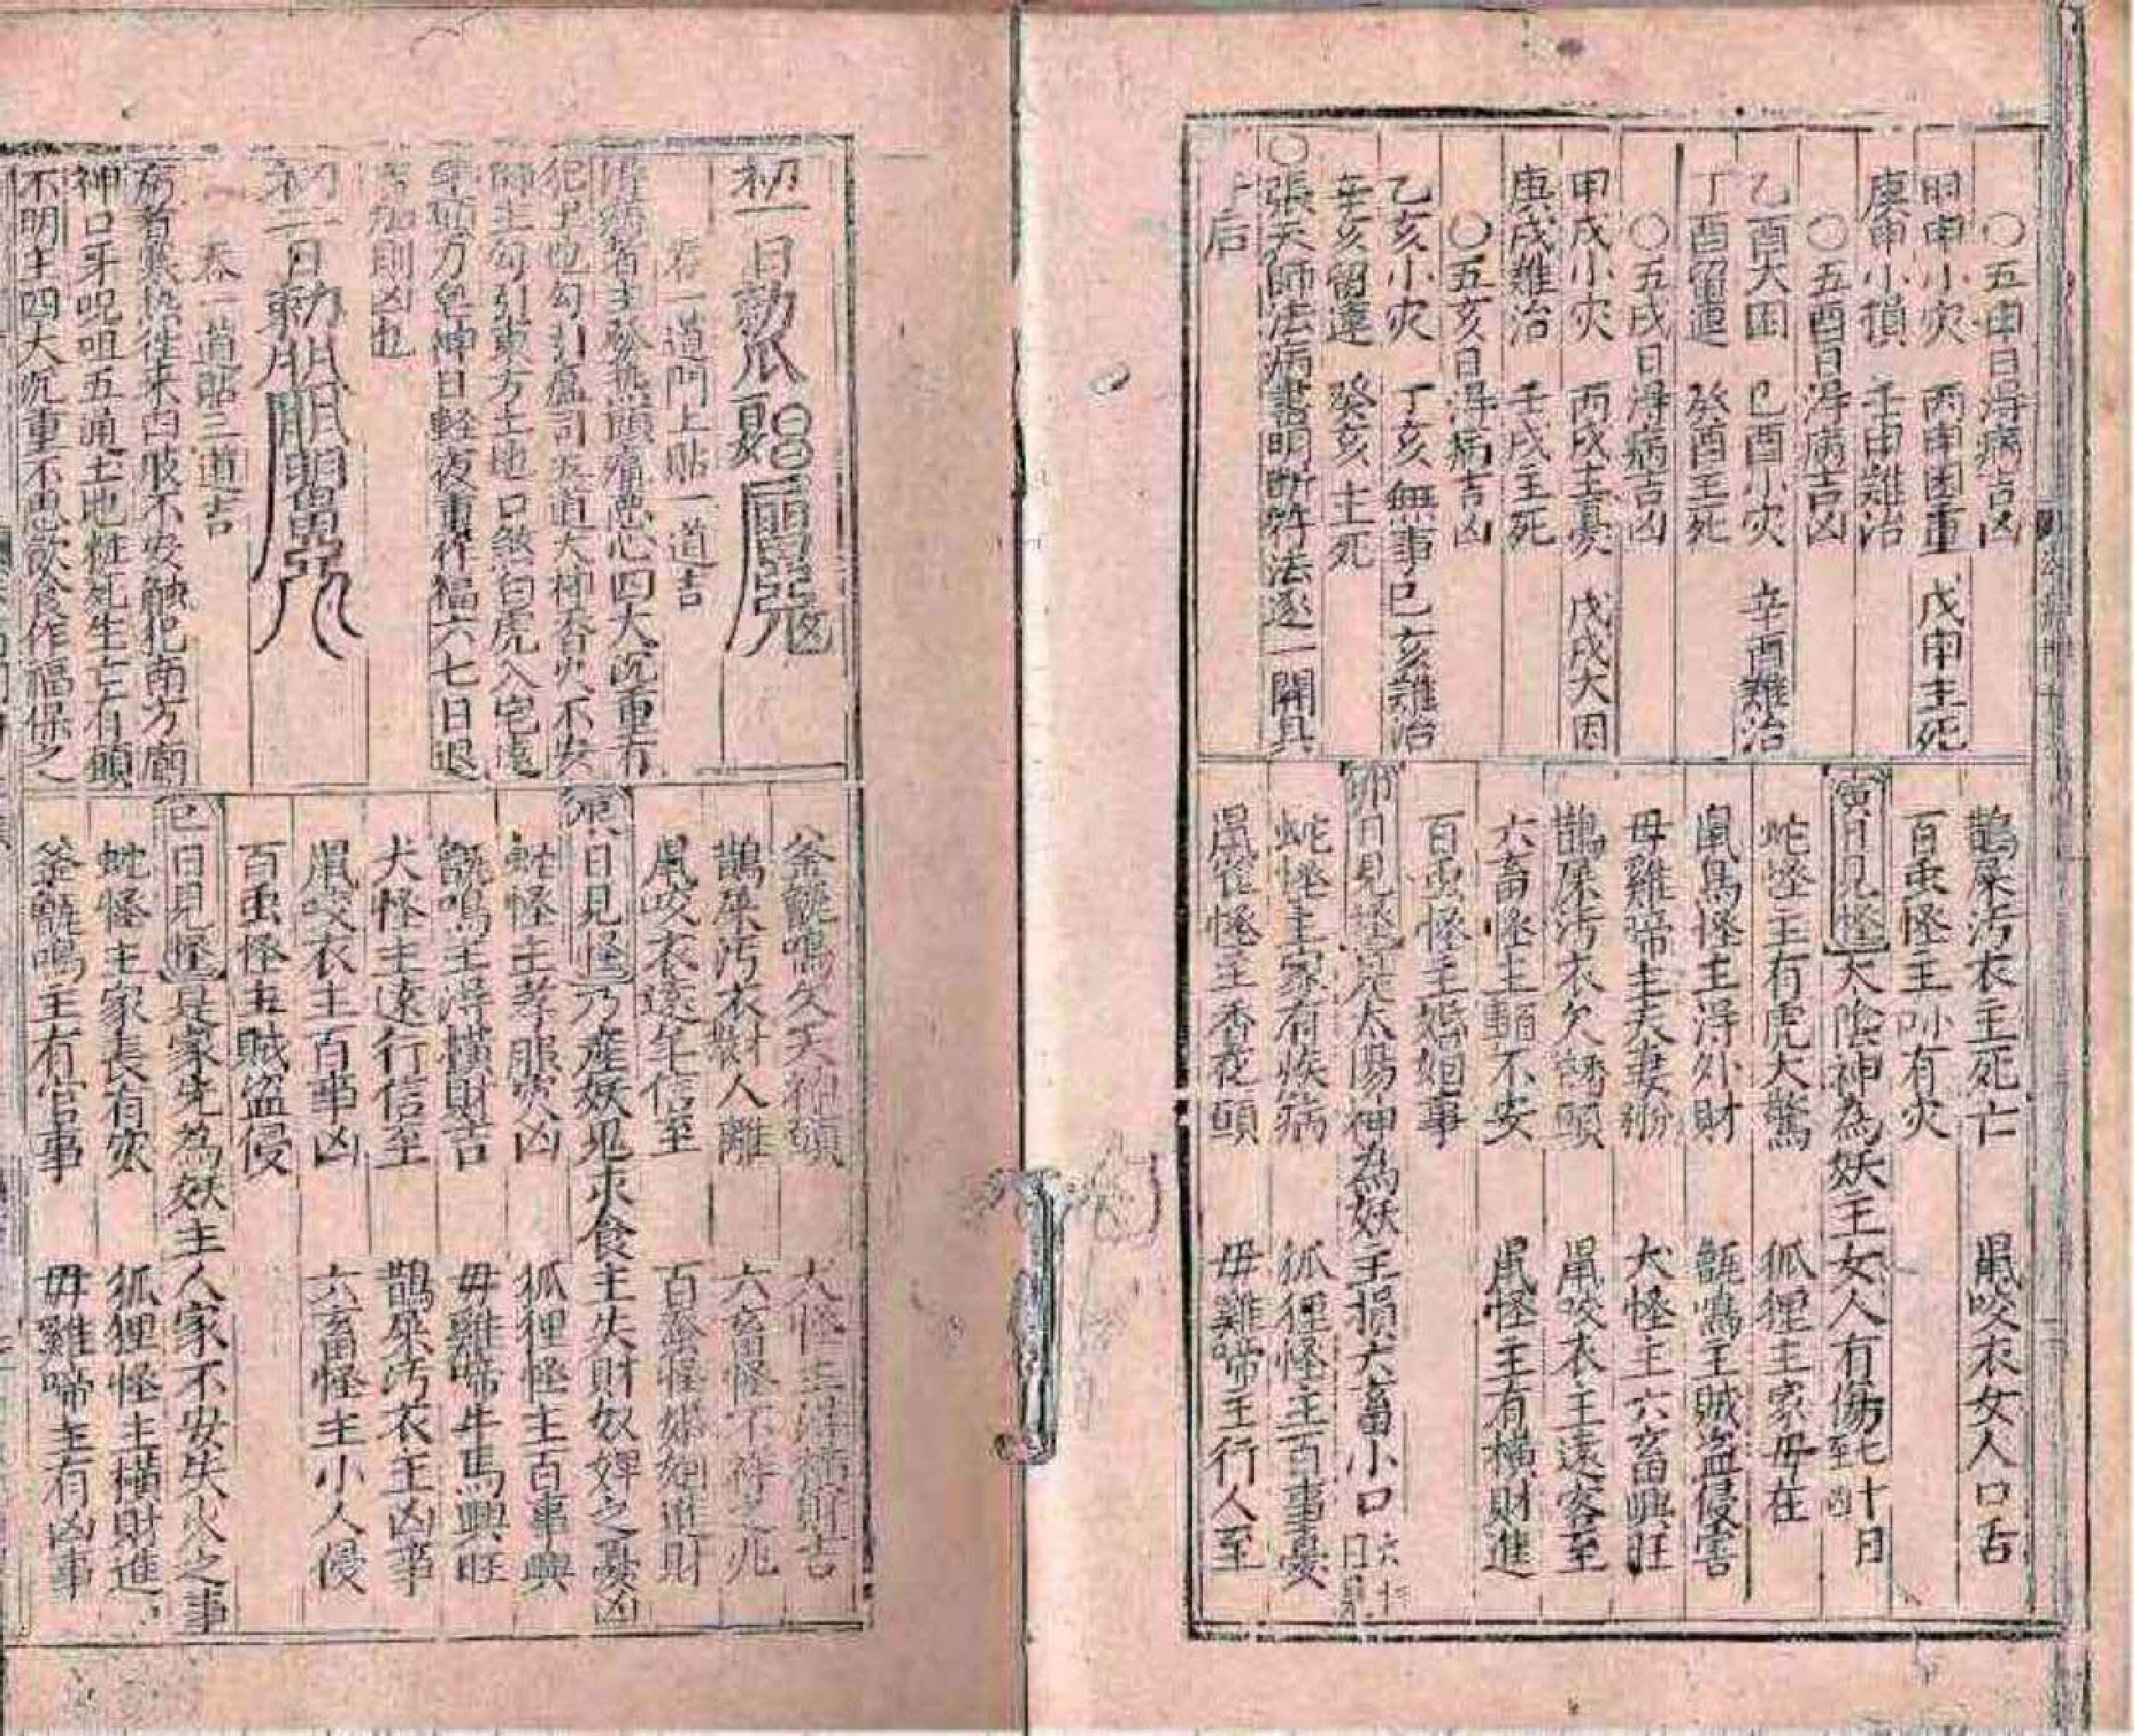 〇五申日淂病吉凶
甲申小灾 丙申困重 戊申主死
庚申小損 壬申難治
〇五酉日淂病吉凶
乙酉大困 己酉小灾 辛酉難治
丁酉留連 癸酉主死
〇五戌日淂病吉凶
甲戌小灾 丙戌主憂 戊戌大困
庚戌難治 壬戌主死
〇五亥日淂病吉凶
乙亥小灾 丁亥無事 己亥難治
辛亥留連 癸亥主死
〇張天師法病書明断符法逐一開具
于后
鵲屎汚衣主死亡 鼠咬衣女人口舌
百虫怪主小有灾
寅日見怪太陰神為妖主女人有傷七十日至凶
蛇怪主有虎犬驚 狐狸主家母在
鼠鳥怪主淂外財 甑鳴主賊盗侵害
母雞啼主夫妻 犬怪主六畜興旺
鵲屎汚衣欠 頭 鼠咬衣主遠客至
六畜怪主 不安 鼠怪主有横財進
百虫怪主婚姻事
卯日見怪是太陽神為妖主損六畜小口六十日見
蛇怪主家有疾病 狐狸怪主百事憂
鼠 怪主香花頭 母雞啼主行人至
初一日
吞一道門上貼一道吉
淂病者主發熱頭痛 四大沉重有
犯 也勾引 司 道大神香火不安
師主勾引東方土地口煞白虎入宅
力 神日軽夜重作福六七日退
加則凶也
初二日
吞一道貼二道吉
病者寒熱往来四肢不安触犯南方廟
神口牙呪咀五通土地 死生亡有願
不明主四大沉重不思飲食作福保之
釜甑鳴欠天神願 犬怪主淂横財吉
鵲屎汚衣財人離 六畜怪不祥之兆
鼠咬衣遠年信至 百虫怪婚姻進財
辰日見怪乃産妖鬼求食主失財奴婢之憂凶
蛇怪主孝服灾凶 狐狸怪主百事興
甑鳴主淂横財吉 母雞啼牛馬興旺
犬怪主遠行信至 鵲屎汚衣主凶事
鼠咬衣主百事凶 六畜怪主小人侵
百虫怪主賊盗侵
巳日見怪是家先為妖主人家不安失火之事
蛇怪主家長有灾 狐狸怪主横財進
釜甑鳴主有官事 母雞啼主有凶事